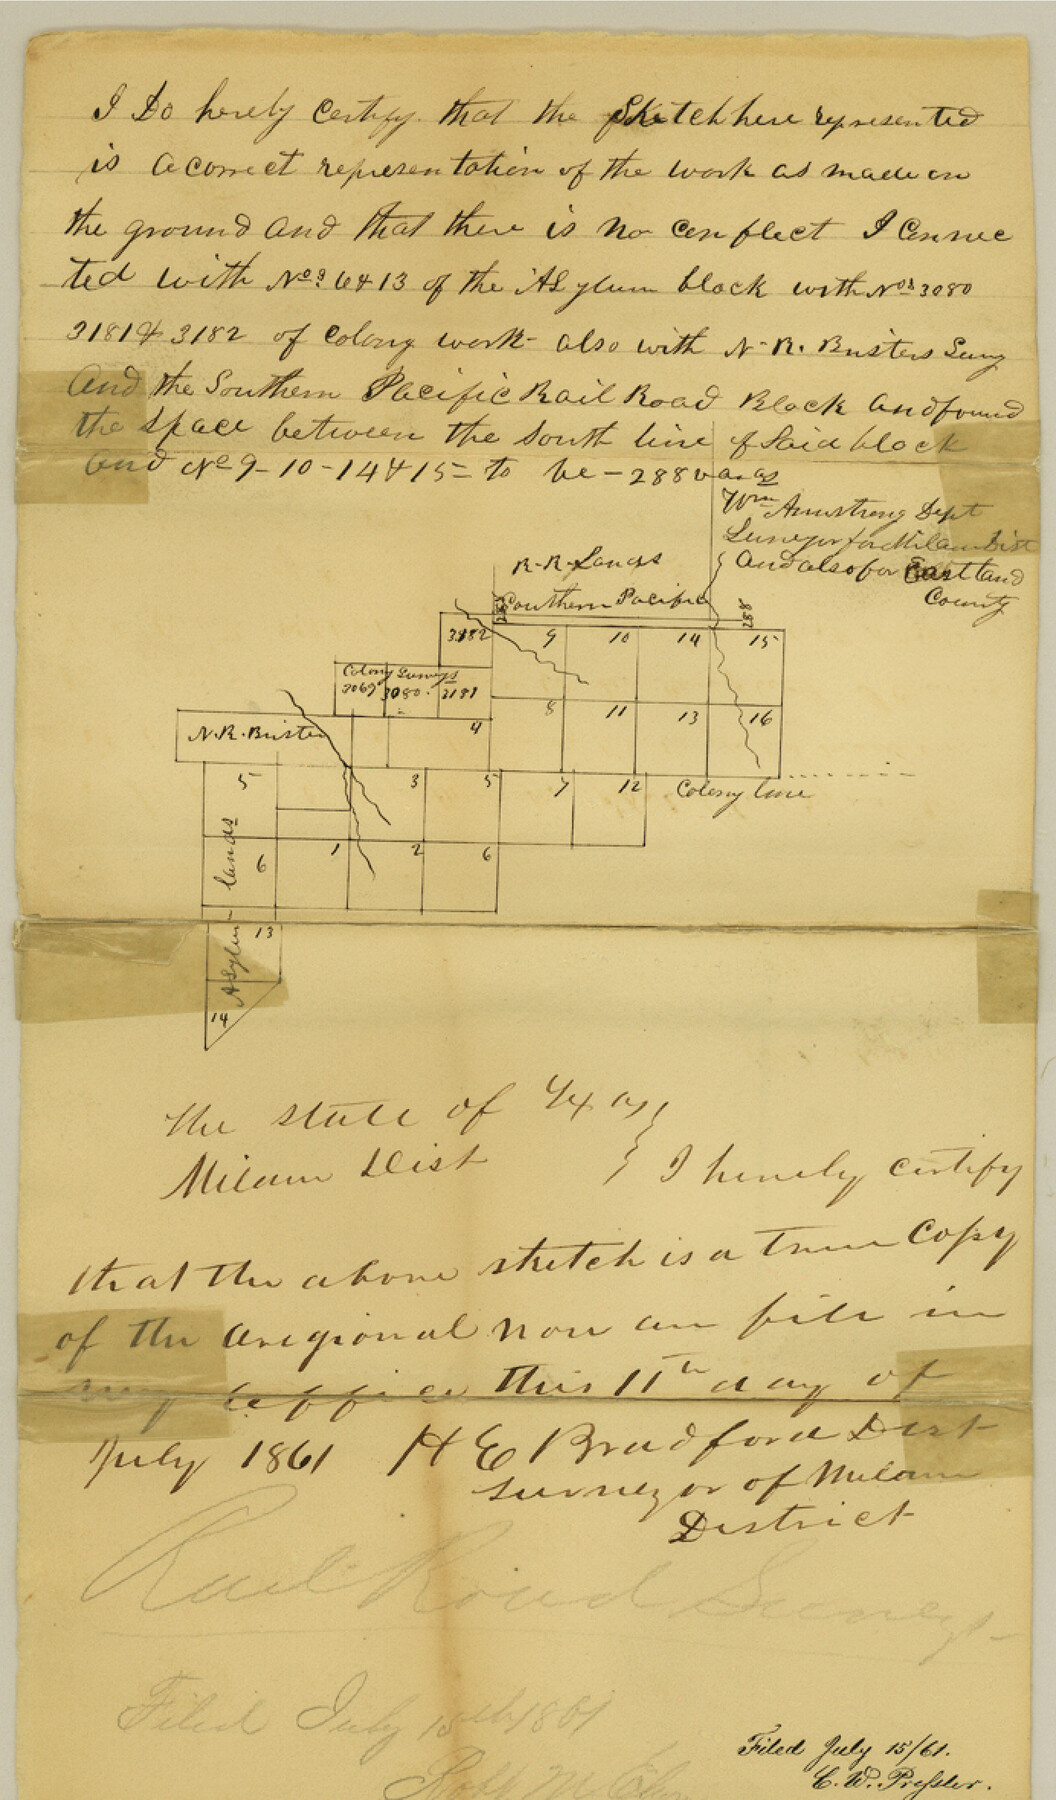 I Do hereby Certify that the Sketch here represented
is a correct representation of the work as made on
the ground and that there is no conflect I Connec
ted with Nos 6 & 13 of the ASylum block with Nos 3080
3181 & 3182 of Colony work also with N. R. Busters Surv
And the Southern Pacific Rail Road Block and found
the space between the South line of Said block
and No 9-10-14 & 15 = to be - 288 varas
Wm Armstrong Dept
Surveyor for Milam Dist
And also for Eastland
County
R-R-Lands
Southern Pacific
288
288
3182
9
10
14
15
Colony Surveys
3069
3080
3181
8
11
13
16
N. R. Buster
4
5
3
5
7
12
Colony line
6
1
2
6
Asylum lands
13
14
The state of Texas
Milam Dist
I hereby certify
that the above sketch is a True Copy
of the aregional now an file in
my office this 11th day of
July 1861 H E Bradford Dist
surveyor of Milam
District
Rail Road Surveys
Filed July 15th 1861
Filed July 15/61.
C. W. Pressler.